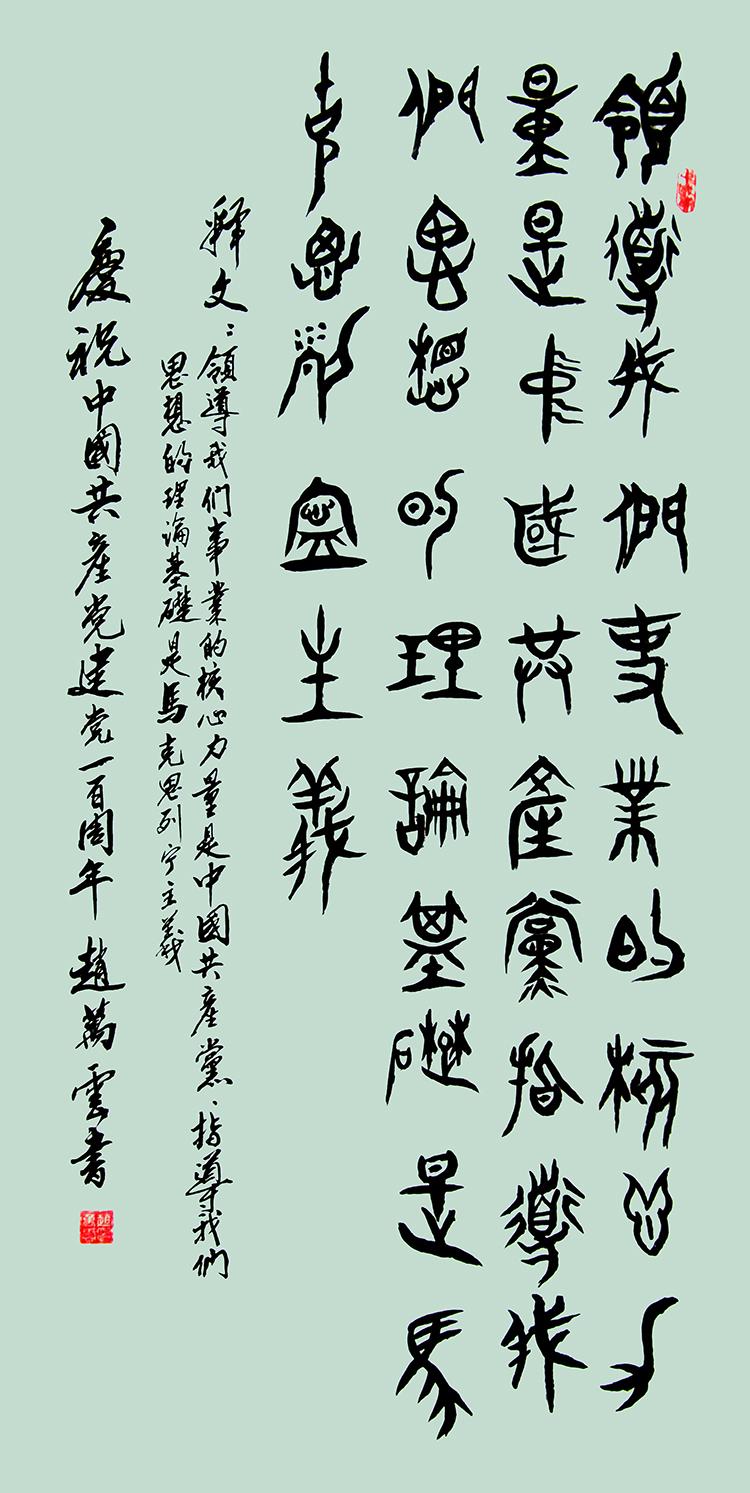 領導我們事業的核心力
量是中國共產黨指導我
們思想的理論基礎是馬
克思列寧主義
釋文：領導我们事業的核心力量是中國共產黨、指導我们
思想的理論基礎是馬克思列宁主義
慶祝中國共產党建党一百周年 趙萬雲書